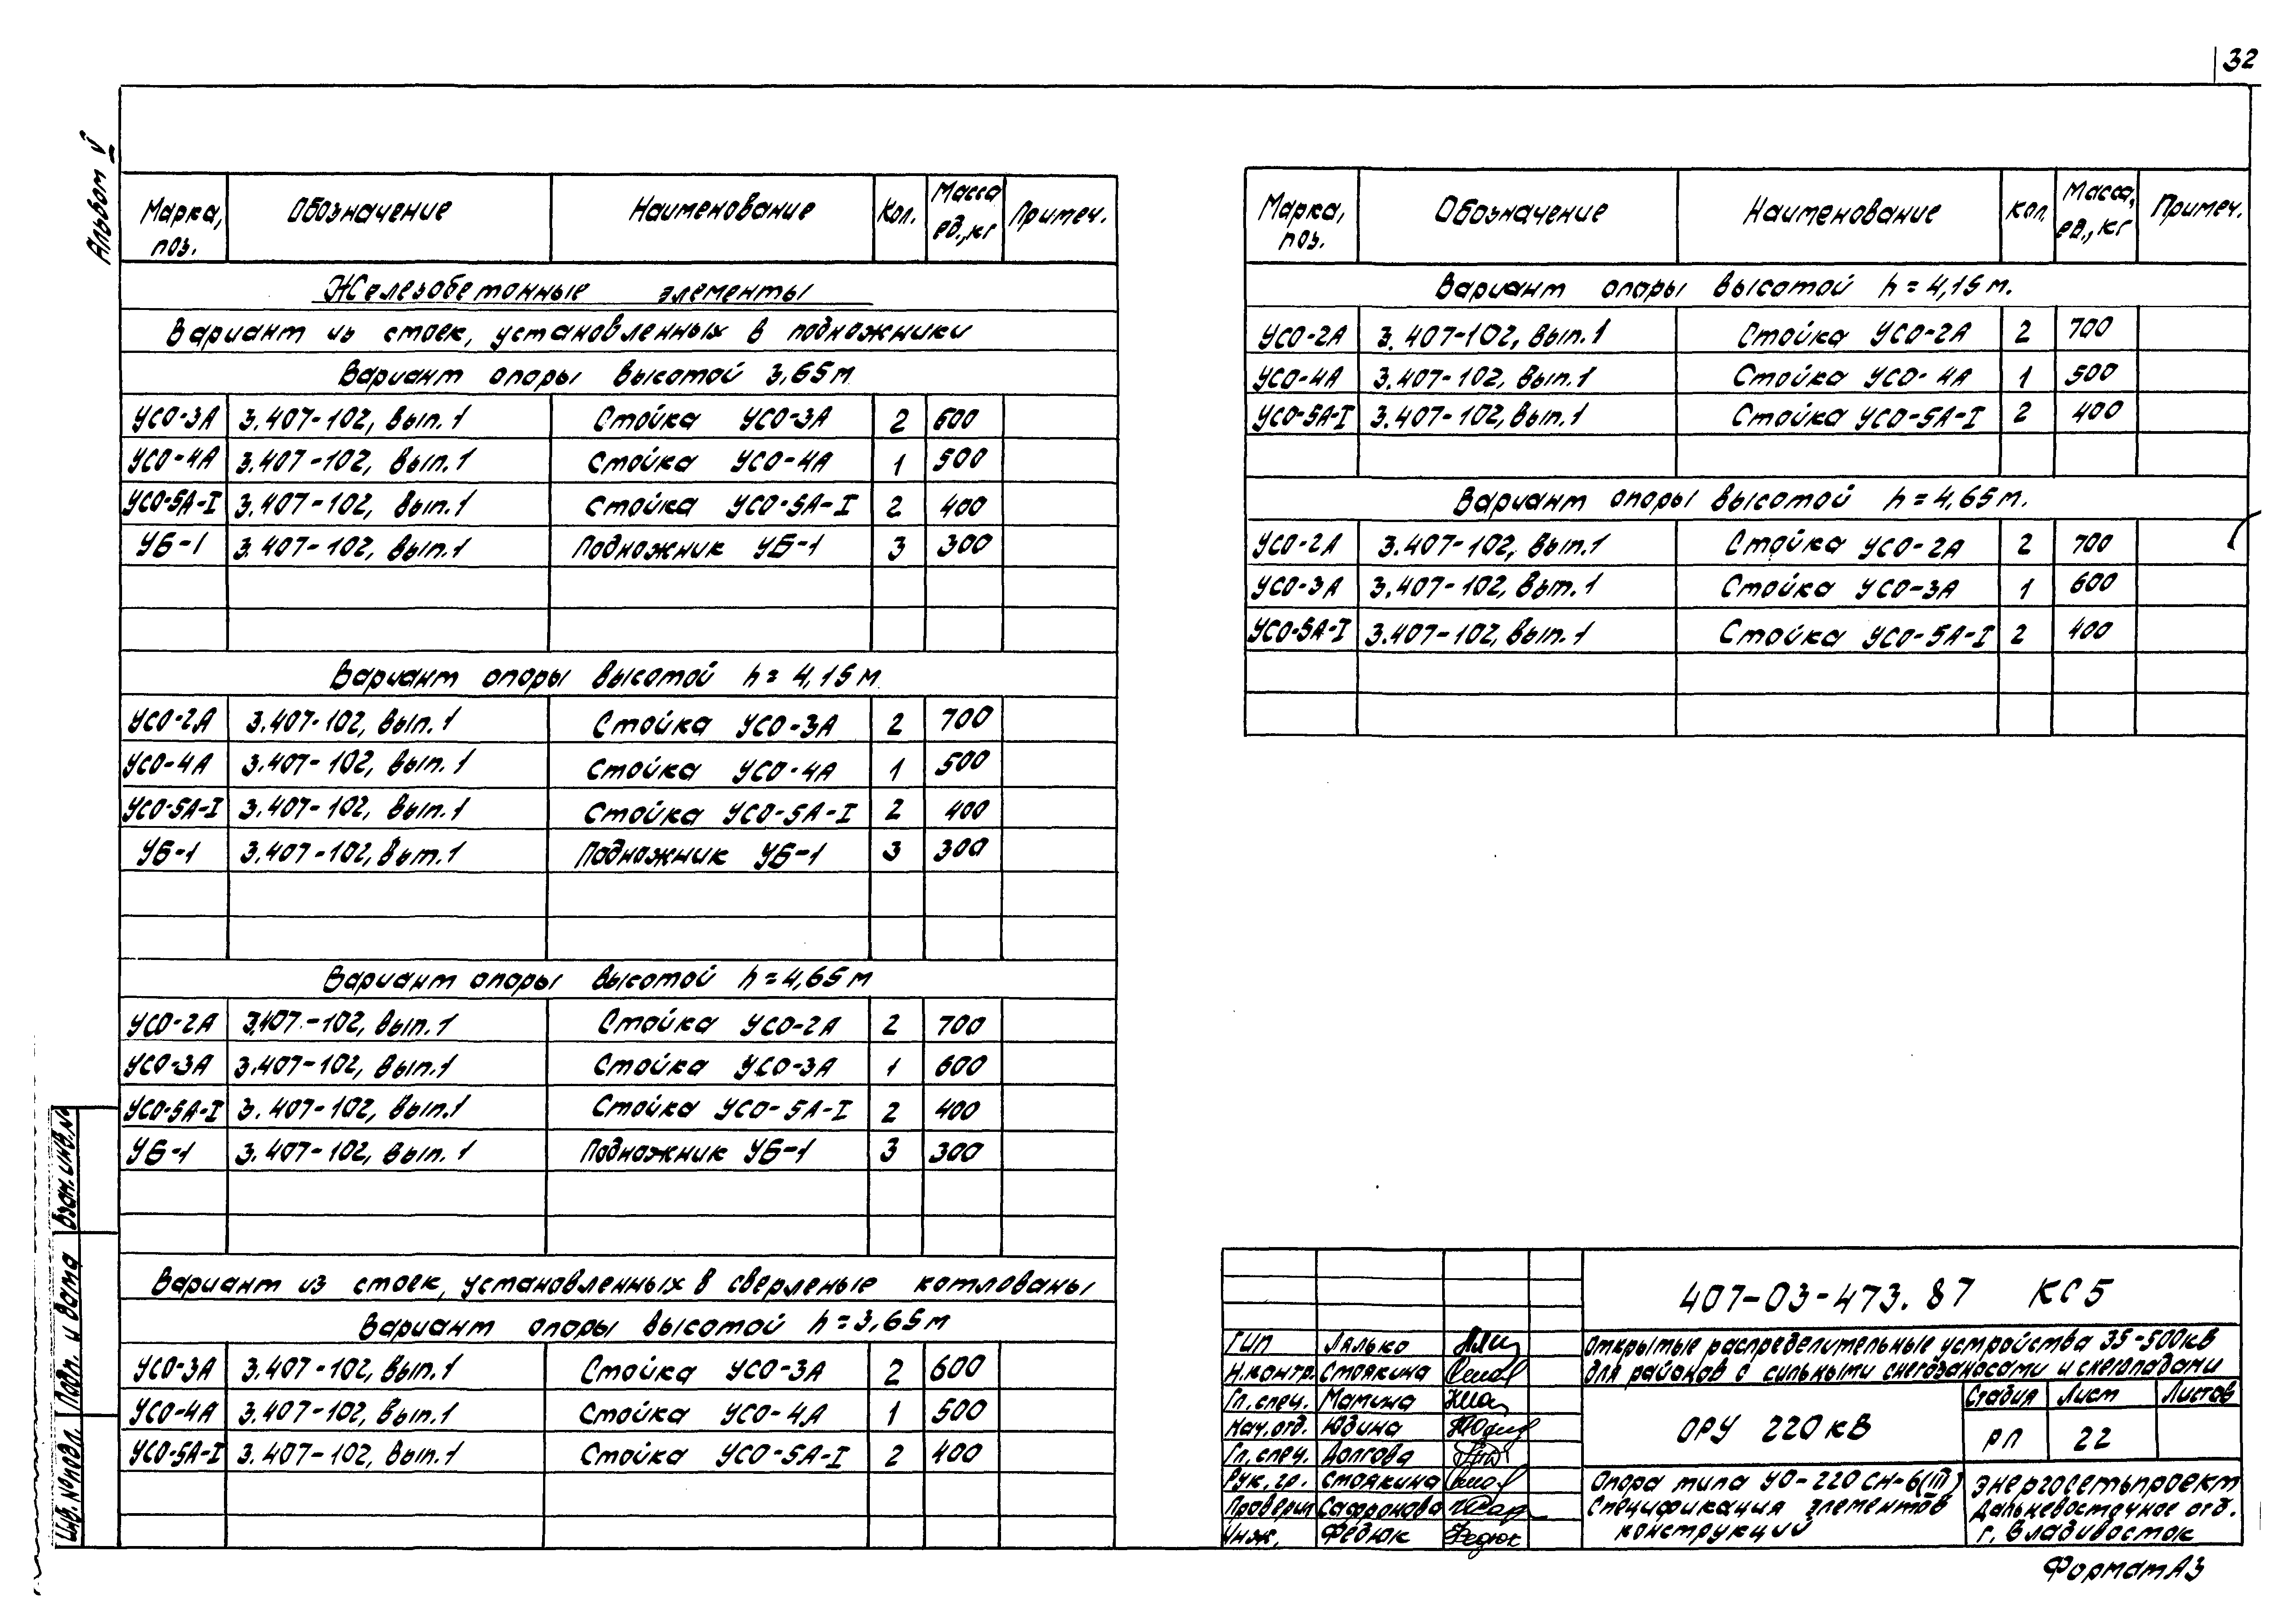 32
Альбом V
Марка, поз. Обозначение Наименование Кол. Масса ед., кг Примеч.
Железобетонные элементы
Вариант из стоек, установленных в подножники
Вариант опоры высотой 3,65 м
УСО-3А 3.407-102, вып.1 Стойка УСО-3А 2 600
УСО-4А 3.407-102, вып.1 Стойка УСО-4А 1 500
УСО-5А-I 3.407-102, вып.1 Стойка УСО-5А-I 2 400
УБ-1 3.407-102, вып.1 Подножник УБ-1 3 300
Вариант опоры высотой h=4,15 м
УСО-2А 3.407-102, вып.1 Стойка УСО-3А 2 700
УСО-4А 3.407-102, вып.1 Стойка УСО-4А 1 500
УСО-5А-I 3.407-102, вып.1 Стойка УСО-5А-I 2 400
УБ-1 3.407-102, вып.1 Подножник УБ-1 3 300
Вариант опоры высотой h=4,65 м
УСО-2А 3.407-102, вып.1 Стойка УСО-2А 2 700
УСО-3А 3.407-102, вып.1 Стойка УСО-3А 1 600
УСО-5А-I 3.407-102, вып.1 Стойка УСО-5А-I 2 400
УБ-1 3.407-102, вып.1 Подножник УБ-1 3 300
Вариант из стоек, установленных в сверленые котлованы
Вариант опоры высотой h=3,65 м
УСО-3А 3.407-102, вып.1 Стойка УСО-3А 2 600
УСО-4А 3.407-102, вып.1 Стойка УСО-4А 1 500
УСО-5А-I 3.407-102, вып.1 Стойка УСО-5А-I 2 400
Марка, поз. Обозначение Наименование Кол. Масса, ед., кг Примеч.
Вариант опоры высотой h=4,15 м.
УСО-2А 3.407-102, вып.1 Стойка УСО-2А 2 700
УСО-4А 3.407-102, вып.1 Стойка УСО-4А 1 500
УСО-5А-I 3.407-102, вып.1 Стойка УСО-5А-I 2 400
Вариант опоры высотой h=4,65 м.
УСО-2А 3.407-102, вып.1 Стойка УСО-2А 2 700
УСО-3А 3.407-102, вып.1 Стойка УСО-3А 1 600
УСО-5А-I 3.407-102, вып.1 Стойка УСО-5А-I 2 400
Взам. инв. №
Подп. и дата
Инв. № подл.
407-03-473.87 КС5
ГИП Лялько
Н.контр. Стоякина
Гл. спец. Мамина
Нач. отд. Юдина
Гл. спец. Долгова
Рук. гр. Стоякина
Проверил Сафронова
Инж. Федюк Федюк
Открытые распределительные устройства 35-500кВ
для районов с сильными снегозаносами и снегопадами
ОРУ 220кВ
Стадия Лист Листов
РП 22
Опора типа УО-220 СН-6(III)
Спецификация элементов
конструкций
Энергосетьпроект
Дальневосточное отд.
г. Владивосток
Формат А3